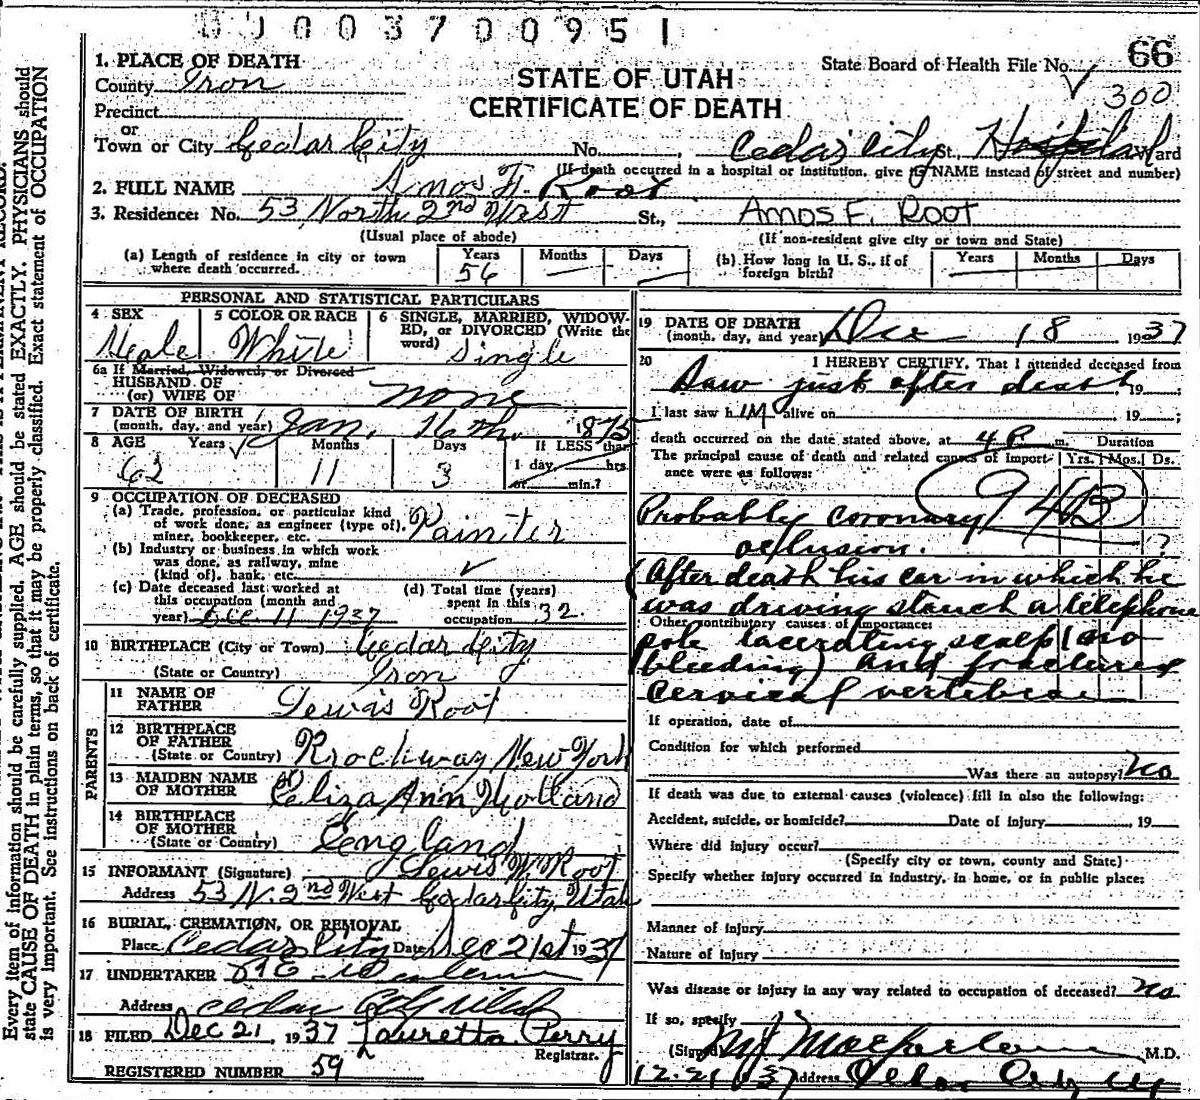 0003700951
66
State Board of Health File No.
300
1. PLACE OF DEATH
County Iron
STATE OF UTAH
CERTIFICATE OF DEATH
Precinct
or
Town or City Cedar City No. Cedar City St., Hospital Ward
(If death occurred in a hospital or institution, give its NAME instead of street and number)
2. FULL NAME Amos F. Root
3. Residence: No. 53 North 2nd West St., AMOS F. ROOT
(Usual place of abode) (If non-resident give city or town and State)
(a) Length of residence in city or town where death occurred. Years 56 Months Days
(b) How long in U. S., if of foreign birth? Years Months Days
PERSONAL AND STATISTICAL PARTICULARS
4 SEX Male
5 COLOR OR RACE White
6 SINGLE, MARRIED, WIDOWED, or DIVORCED (Write the word) Single
6a If Married, Widowed, or Divorced
HUSBAND OF
(or) WIFE OF none
7 DATE OF BIRTH
(month, day, and year) Jan. 16th. 1875
8 AGE Years 62 Months 11 Days 3 If LESS than 1 day, hrs. or min.?
9 OCCUPATION OF DECEASED
(a) Trade, profession, or particular kind of work done, as engineer (type of), miner, bookkeeper, etc. Painter
(b) Industry or business in which work was done, as railway, mine (kind of), bank, etc.
(c) Date deceased last worked at this occupation (month and year) Dec. 11 1937
(d) Total time (years) spent in this occupation 32
10 BIRTHPLACE (City or Town) Cedar City
(State or Country) Iron
PARENTS
11 NAME OF FATHER Lewis Root
12 BIRTHPLACE OF FATHER (State or Country) Rockway New York
13 MAIDEN NAME OF MOTHER Eliza Ann Holland
14 BIRTHPLACE OF MOTHER (State or Country) England
15 INFORMANT (Signature) Lewis W. Root
Address 53 N. 2nd West Cedar City, Utah
16 BURIAL, CREMATION, OR REMOVAL
Place Cedar City Date Dec 21st 1937
17 UNDERTAKER
Address Cedar City
18 FILED Dec 21, 1937 Lauretta Perry
Registrar.
REGISTERED NUMBER 59
19 DATE OF DEATH
(month, day, and year) Dec 18 1937
20 I HEREBY CERTIFY, That I attended deceased from
Saw just after death, 19 ;
I last saw h IM alive on , 19 ;
death occurred on the date stated above, at 4 P. m. Duration
The principal cause of death and related causes of importance were as follows: Yrs. Mos. Ds.
94B
Probably coronary
occlusion. ?
(After death his car in which he
was driving struck a telephone
Other contributory causes of importance:
pole lacerating scalp (no
bleeding) and fractured
cervical vertebrae
If operation, date of
Condition for which performed
Was there an autopsy? No
If death was due to external causes (violence) fill in also the following:
Accident, suicide, or homicide? Date of injury , 19
Where did injury occur?
(Specify city or town, county and State)
Specify whether injury occurred in industry, in home, or in public place:
Manner of injury
Nature of injury
Was disease or injury in any way related to occupation of deceased? no
If so, specify
(Signed) Macfarlane M.D.
12-21 37 Address Cedar City Ut
Every item of information should be carefully supplied. AGE should be stated EXACTLY. PHYSICIANS should
state CAUSE OF DEATH in plain terms, so that it may be properly classified. Exact statement of OCCUPATION
is very important. See instructions on back of certificate.